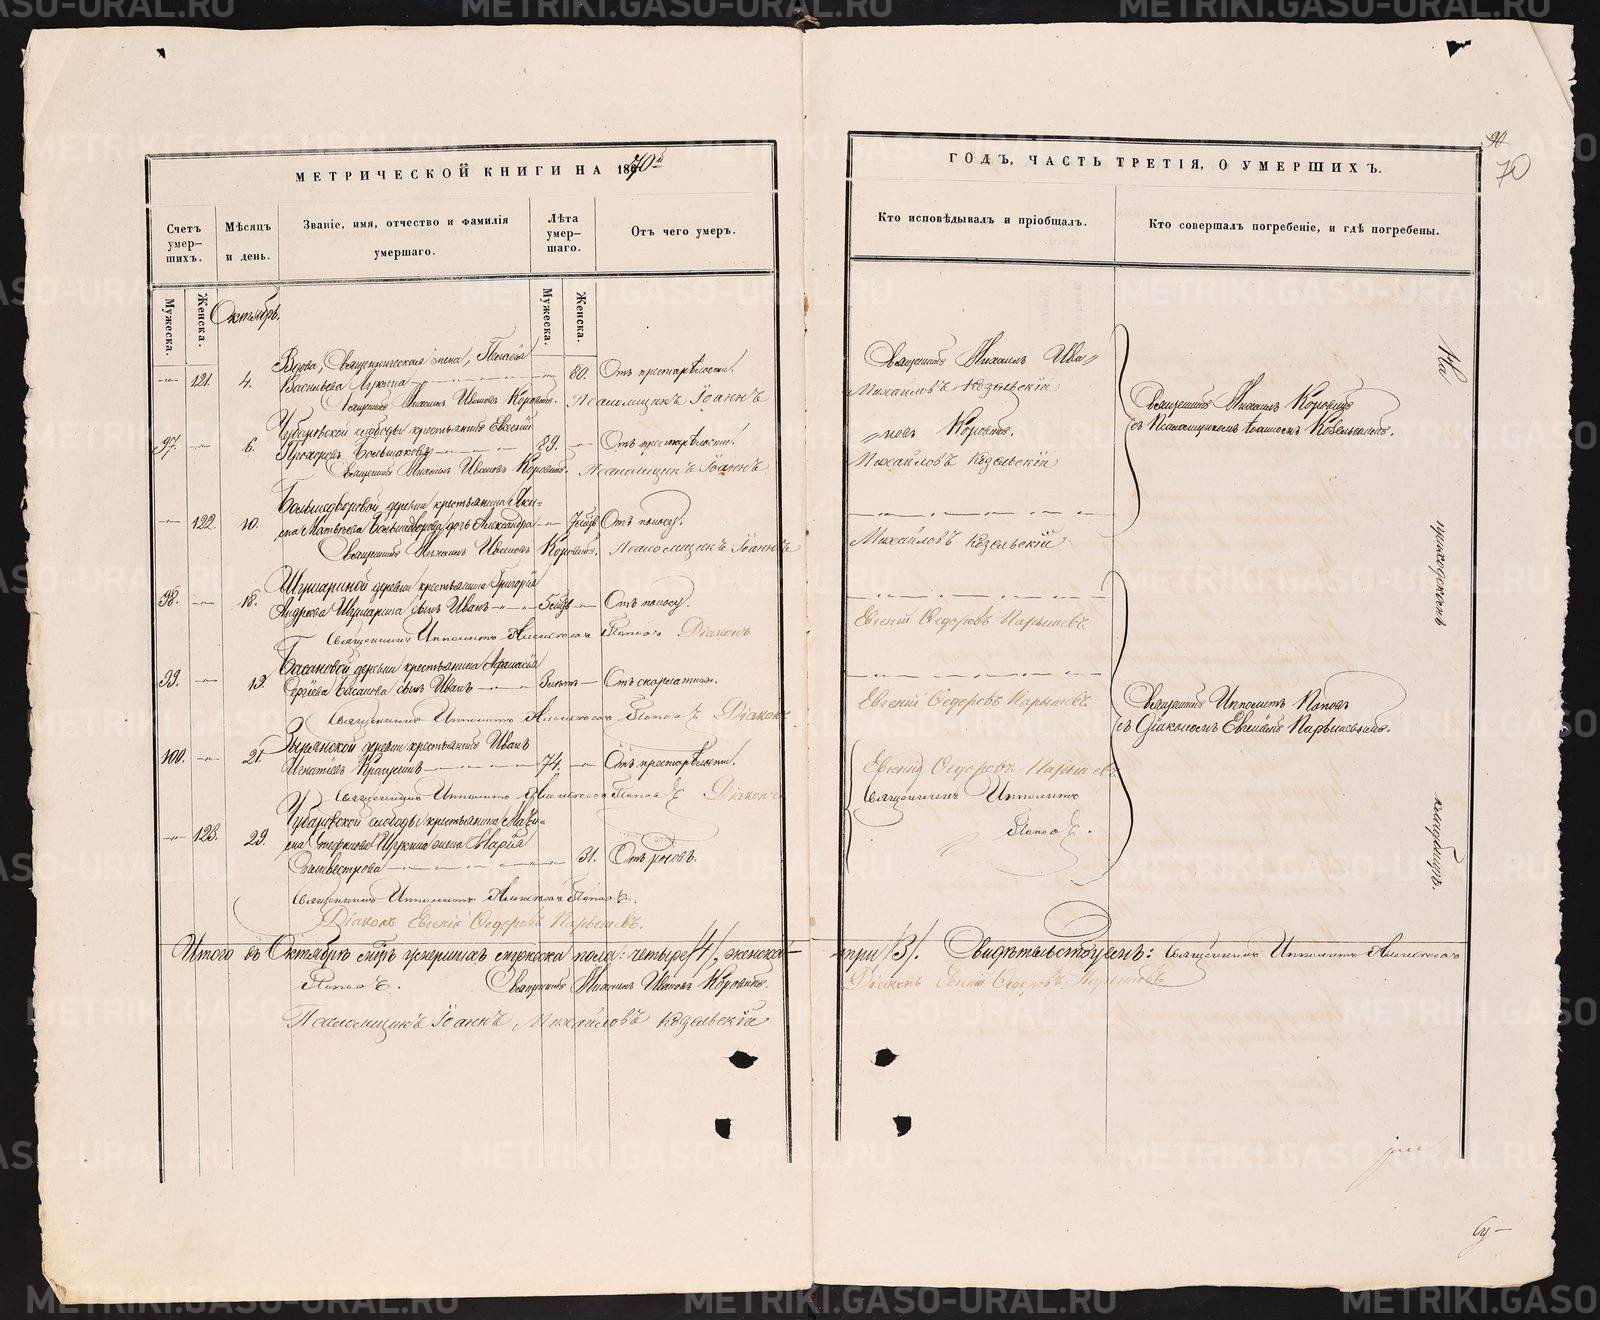 МЕТРИЧЕСКОЙ КНИГИ НА 1870й
ГОДЪ, ЧАСТЬ ТРЕТІЯ, О УМЕРШИХЪ.
70
Счетъ умер-шихъ.
Мѣсяцъ и день.
Званіе, имя, отчество и фамилія умершаго.
Лѣта умер-шаго.
Отъ чего умеръ.
Кто исповѣдывалъ и пріобщалъ.
Кто совершалъ погребеніе, и гдѣ погребены.
Мужеска.
Женска.
Мужеска.
Женска.
Октябрь.
Вдова, Священническая жена, Пелагія
121. 4. Васильева 60. Отъ престарѣлости.
Священникъ Михаилъ Иванов Коровинъ. Псаломщикъ Іоаннъ
Чубаровской слободы крестьянинъ Евсевій
97. 6. Прохоровъ Большаковъ 89. Отъ престарѣлости.
Священникъ Михаилъ Ивановъ Коровинъ. Псаломщикъ Іоаннъ
Большедворовой деревни крестьянина Яки-
122. 10. ма Матвѣева Большедворова дочь Александра Отъ поносу.
Священникъ Михаилъ Ивановъ Коровинъ. Псаломщикъ Іоаннъ
Шумариной деревни крестьянина Григорія
98. 18. Андреева Шумарина сынъ Иванъ Отъ поносу.
Священникъ Ипполитъ Алексѣевъ Поповъ Діаконъ
Басановой деревни крестьянина Афанасія
99. 19. Сергіева Басанова сынъ Иванъ Отъ скарлатины.
Священникъ Ипполитъ Алексѣевъ Поповъ Діаконъ
Зырянской деревни крестьянинъ Иванъ
100. 21. Игнатіевъ 74. Отъ престарѣлости.
Священникъ Ипполитъ Алексѣевъ Поповъ Діаконъ
Чубаровской слободы крестьянина Макси-
123. 29. ма жена Марія
Сильвестрова 31. Отъ родовъ.
Священникъ Ипполитъ Алексѣевъ Поповъ.
Діаконъ Евгеній Ѳедоровъ Парышевъ.
Итого въ Октябрѣ м-цѣ умершихъ мужеска пола: четыре /4/, женска
Поповъ. Священникъ Михаилъ Ивановъ Коровинъ.
Псаломщикъ Іоаннъ Михайловъ Козельскій
Священникъ Михаилъ Ива
Михайловъ Козельскій
новъ Коровинъ.
Михайловъ Козельскій
Михайловъ Козельскій
Евгеній Ѳедоровъ Парышевъ.
Евгеній Ѳедоровъ Парышевъ.
Евгеній Ѳедоровъ Парышевъ
Священникъ Ипполитъ
Поповъ.
Священникъ Михаилъ Коровинъ
съ Псаломщикомъ Іоанномъ Козельскимъ.
Священникъ Ипполитъ Поповъ
съ Діакономъ Евгеніемъ Парышевымъ.
На
приходскомъ
кладбищѣ.
три /3/. Свидѣтельствуемъ: Священникъ Ипполитъ Алексѣевъ
Діаконъ Евгеній Ѳедоровъ Парышевъ
METRIKI.GASO-URAL.RU